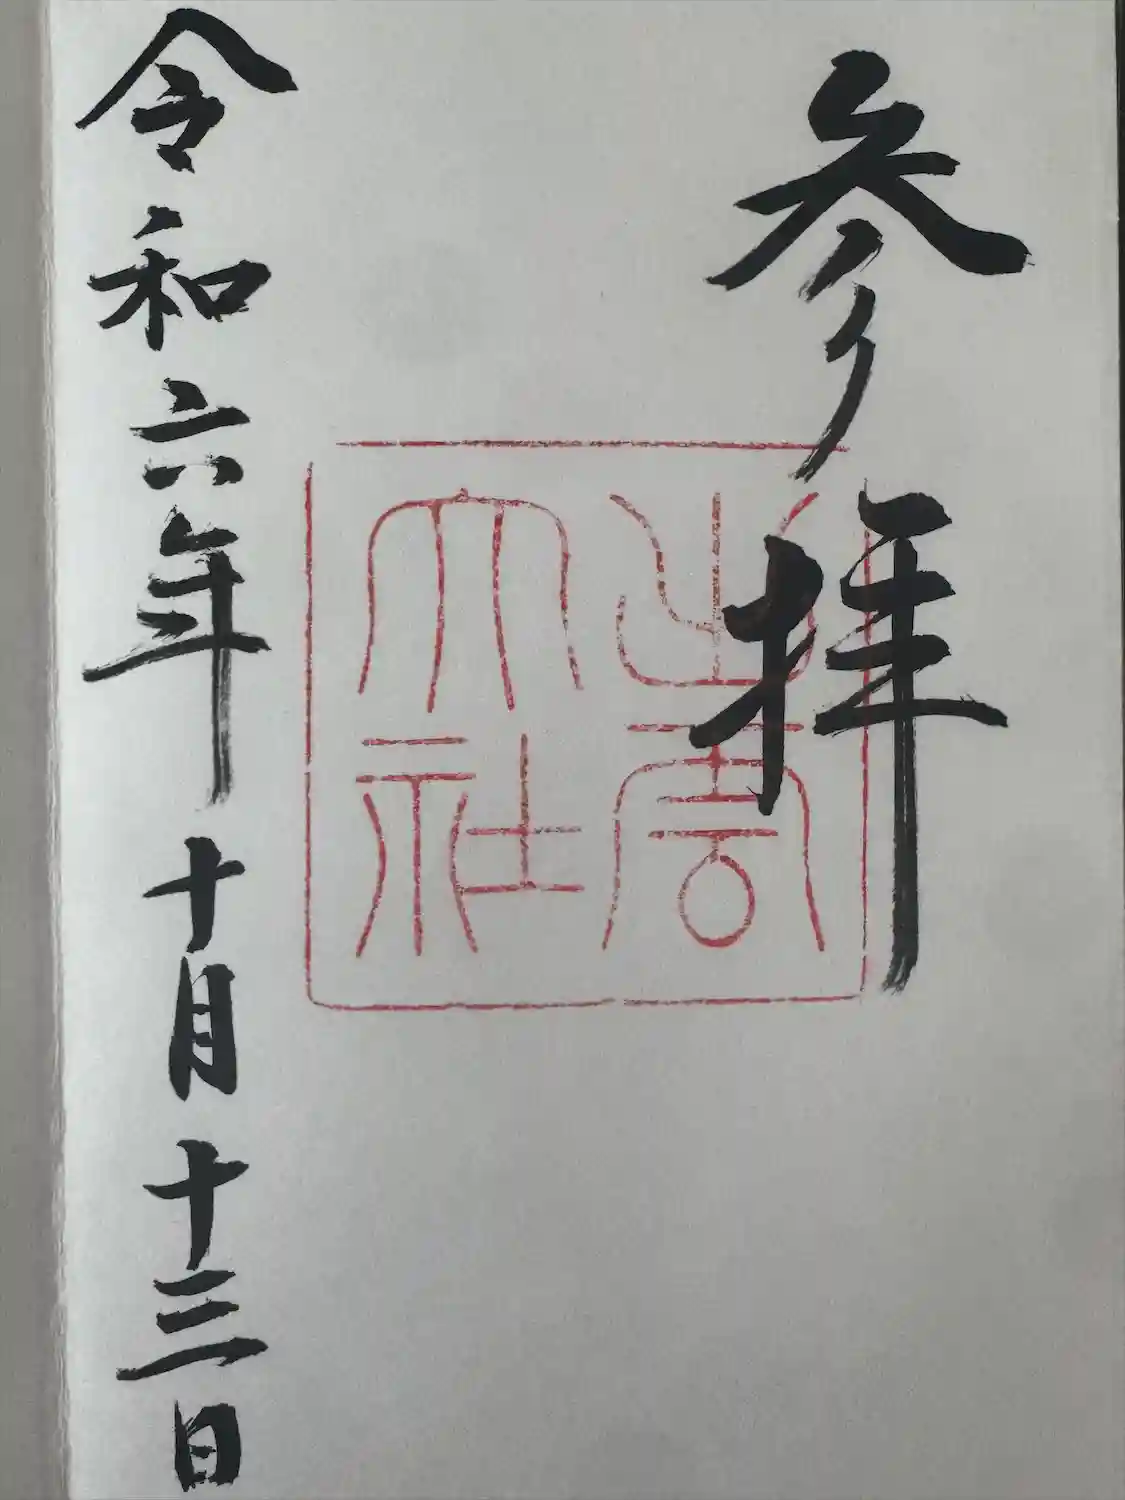 参拝
出雲
大社
令和六年十月十三日